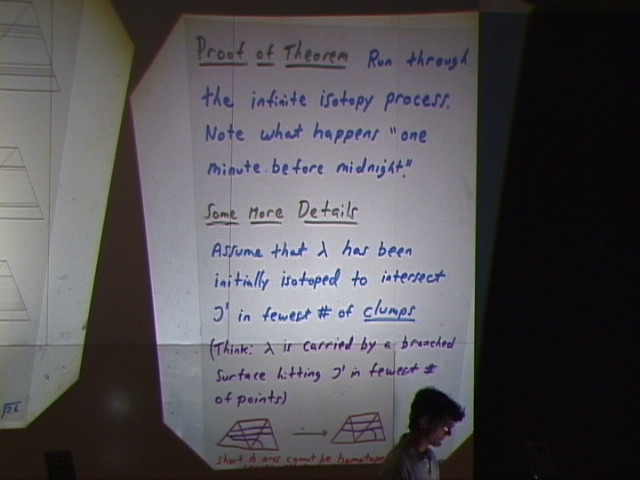 Proof of Theorem Run through
the infinite isotopy process.
Note what happens "one
minute before midnight."
Some More Details
Assume that λ has been
initially isotoped to intersect
J' in fewest # of clumps
(Think: λ is carried by a branched
surface hitting J' in fewest #
of points)
short arcs cannot be homotoped
26